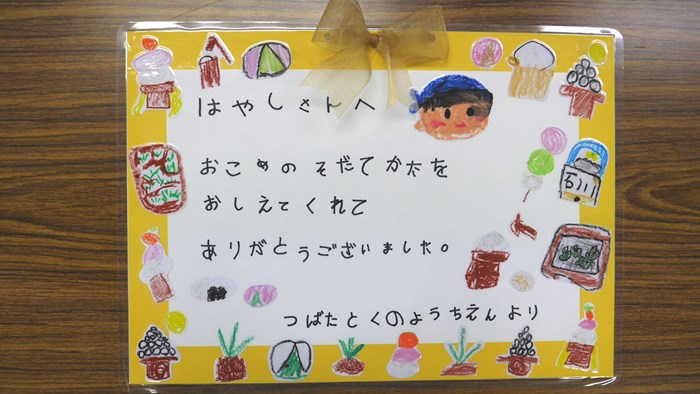 はやしさんへ
おこめのそだてかたを
おしえてくれて
ありがとうございました。
つばたとくのようちえんより
石川